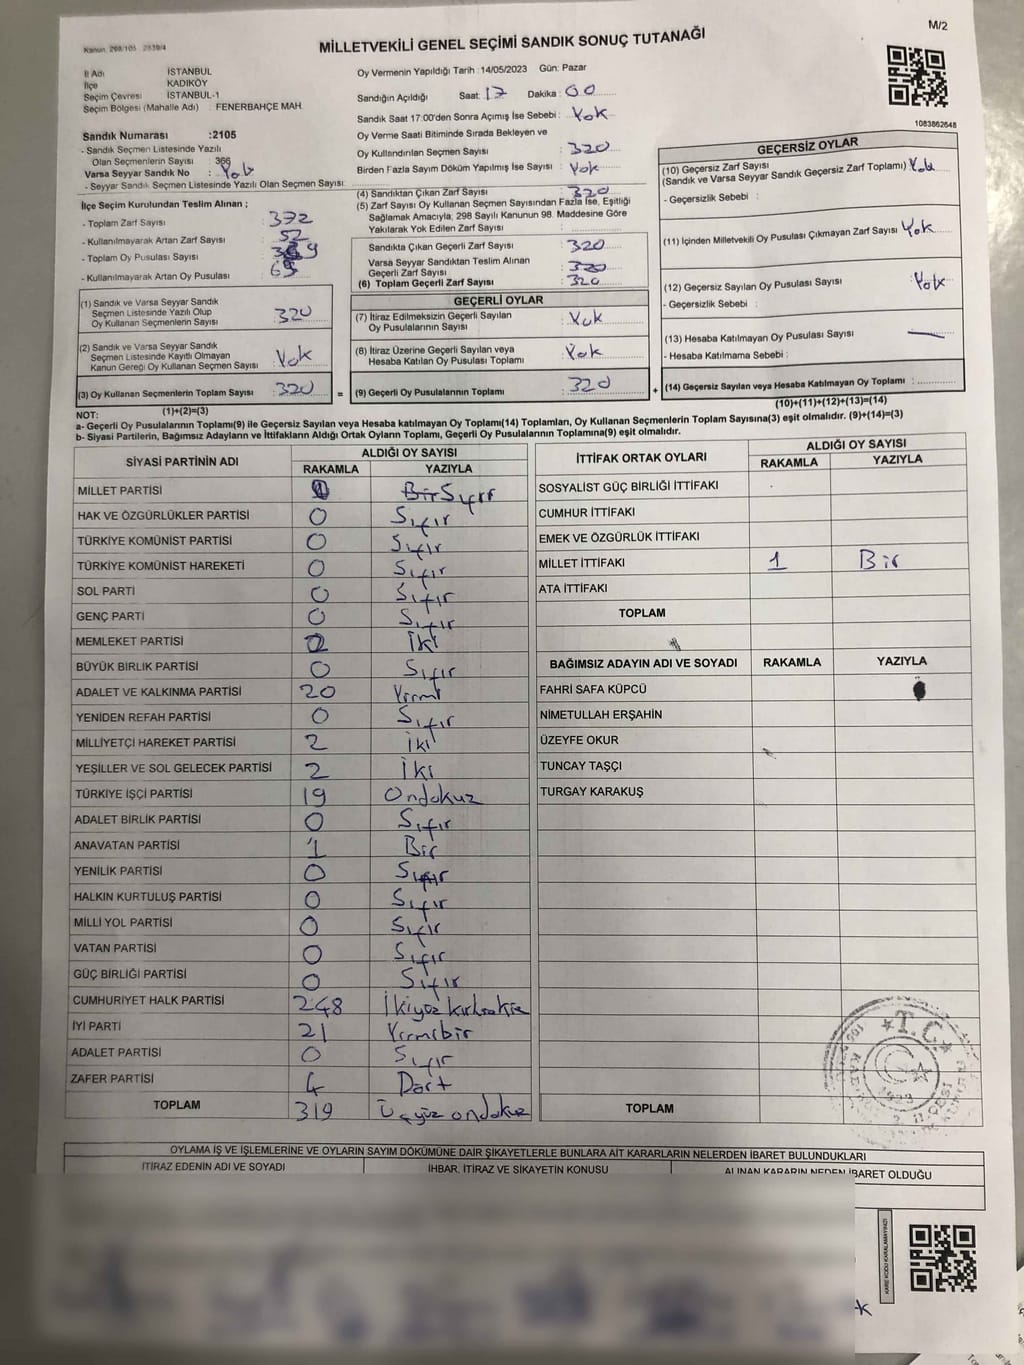 M/2
Kanun. 298/105 2839/4
MİLLETVEKİLİ GENEL SEÇİMİ SANDIK SONUÇ TUTANAĞI
İl Adı İSTANBUL
İlçe KADIKÖY
Seçim Çevresi İSTANBUL-1
Seçim Bölgesi (Mahalle Adı) : FENERBAHÇE MAH.
Sandık Numarası :2105
- Sandık Seçmen Listesinde Yazılı
Olan Seçmenlerin Sayısı : 366
Varsa Seyyar Sandık No : Yok
- Seyyar Sandık Seçmen Listesinde Yazılı Olan Seçmen Sayısı:
İlçe Seçim Kurulundan Teslim Alınan ;
- Toplam Zarf Sayısı : 372
- Kullanılmayarak Artan Zarf Sayısı : 52
- Toplam Oy Pusulası Sayısı :
- Kullanılmayarak Artan Oy Pusulası : 69
(1) Sandık ve Varsa Seyyar Sandık
Seçmen Listesinde Yazılı Olup
Oy Kullanan Seçmenlerin Sayısı : 320
(2) Sandık ve Varsa Seyyar Sandık
Seçmen Listesinde Kayıtlı Olmayan
Kanun Gereği Oy Kullanan Seçmen Sayısı : Yok
(3) Oy Kullanan Seçmenlerin Toplam Sayısı : 320
(1)+(2)=(3)
Oy Vermenin Yapıldığı Tarih : 14/05/2023 Gün: Pazar
Sandığın Açıldığı Saat: 17 Dakika : 00
Sandık Saat 17:00'den Sonra Açımış İse Sebebi : Yok
Oy Verme Saati Bitiminde Sırada Bekleyen ve
Oy Kullandırılan Seçmen Sayısı : 320
Birden Fazla Sayım Döküm Yapılmış İse Sayısı : Yok
(4) Sandıktan Çıkan Zarf Sayısı : 320
(5) Zarf Sayısı Oy Kullanan Seçmen Sayısından Fazla İse, Eşitliği
Sağlamak Amacıyla, 298 Sayılı Kanunun 98. Maddesine Göre
Yakılarak Yok Edilen Zarf Sayısı :
Sandıkta Çıkan Geçerli Zarf Sayısı : 320
Varsa Seyyar Sandıktan Teslim Alınan
Geçerli Zarf Sayısı : 320
(6) Toplam Geçerli Zarf Sayısı : 320
GEÇERLİ OYLAR
(7) İtiraz Edilmeksizin Geçerli Sayılan
Oy Pusulalarının Sayısı : Yok
(8) İtiraz Üzerine Geçerli Sayılan veya
Hesaba Katılan Oy Pusulası Toplamı : Yok
= (9) Geçerli Oy Pusulalarının Toplamı : 320 +
1083862648
GEÇERSİZ OYLAR
(10) Geçersiz Zarf Sayısı
(Sandık ve Varsa Seyyar Sandık Geçersiz Zarf Toplamı) : Yok
- Geçersizlik Sebebi :
(11) İçinden Milletvekili Oy Pusulası Çıkmayan Zarf Sayısı : Yok
(12) Geçersiz Sayılan Oy Pusulası Sayısı : Yok
- Geçersizlik Sebebi :
(13) Hesaba Katılmayan Oy Pusulası Sayısı : —
- Hesaba Katılmama Sebebi :
(14) Geçersiz Sayılan veya Hesaba Katılmayan Oy Toplamı :
(10)+(11)+(12)+(13)=(14)
NOT:
a- Geçerli Oy Pusulaların Toplamı(9) ile Geçersiz Sayılan veya Hesaba katılmayan Oy Toplamı(14) Toplamları, Oy Kullanan Seçmenlerin Toplam Sayısına(3) eşit olmalıdır. (9)+(14)=(3)
b- Siyasi Partilerin, Bağımsız Adayların ve İttifakların Aldığı Ortak Oyların Toplamı, Geçerli Oy Pusulalarının Toplamına(9) eşit olmalıdır.
SİYASİ PARTİNİN ADI ALDIĞI OY SAYISI
RAKAMLA YAZIYLA
MİLLET PARTİSİ Sıfır
HAK VE ÖZGÜRLÜKLER PARTİSİ 0 Sıfır
TÜRKİYE KOMÜNİST PARTİSİ 0 Sıfır
TÜRKİYE KOMÜNİST HAREKETİ 0 Sıfır
SOL PARTİ 0 Sıfır
GENÇ PARTİ 0 Sıfır
MEMLEKET PARTİSİ 2 İki
BÜYÜK BİRLİK PARTİSİ 0 Sıfır
ADALET VE KALKINMA PARTİSİ 20 Yirmi
YENİDEN REFAH PARTİSİ 0 Sıfır
MİLLİYETÇİ HAREKET PARTİSİ 2 İki
YEŞİLLER VE SOL GELECEK PARTİSİ 2 İki
TÜRKİYE İŞÇİ PARTİSİ 19 Ondokuz
ADALET BİRLİK PARTİSİ 0 Sıfır
ANAVATAN PARTİSİ 1 Bir
YENİLİK PARTİSİ 0 Sıfır
HALKIN KURTULUŞ PARTİSİ 0 Sıfır
MİLLİ YOL PARTİSİ 0 Sıfır
VATAN PARTİSİ 0 Sıfır
GÜÇ BİRLİĞİ PARTİSİ 0 Sıfır
CUMHURİYET HALK PARTİSİ 248 İkiyüz
İYİ PARTİ 21 Yirmibir
ADALET PARTİSİ 0 Sıfır
ZAFER PARTİSİ 4 Dört
TOPLAM 319 Üçyüz ondokuz
İTTİFAK ORTAK OYLARI ALDIĞI OY SAYISI
RAKAMLA YAZIYLA
SOSYALİST GÜÇ BİRLİĞİ İTTİFAKI
CUMHUR İTTİFAKI
EMEK VE ÖZGÜRLÜK İTTİFAKI
MİLLET İTTİFAKI 1 Bir
ATA İTTİFAKI
TOPLAM
BAĞIMSIZ ADAYIN ADI VE SOYADI RAKAMLA YAZIYLA
FAHRİ SAFA KÜPCÜ
NİMETULLAH ERŞAHİN
ÜZEYFE OKUR
TUNCAY TAŞÇI
TURGAY KARAKUŞ
TOPLAM
T.C.
OYLAMA İŞ VE İŞLEMLERİNE VE OYLARIN SAYIM DÖKÜMÜNE DAİR ŞİKAYETLERLE BUNLARA AİT KARARLARIN NELERDEN İBARET BULUNDUKLARI
İTİRAZ EDENİN ADI VE SOYADI İHBAR, İTİRAZ VE ŞİKAYETİN KONUSU ALINAN KARARIN NEDEN İBARET OLDUĞU
KARE KODU KARALAMAYINIZ!